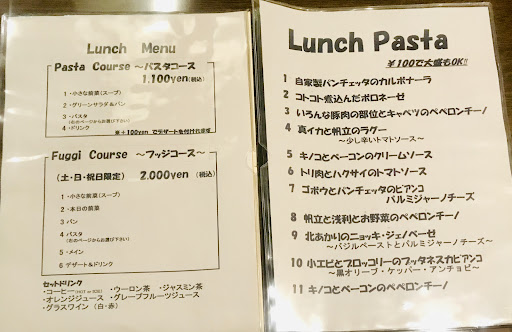 Lunch Menu
Pasta Course ～パスタコース
1,100yen(税込)
1 ・小さな前菜(スープ)
2 ・グリーンサラダ＆パン
3 ・パスタ
(右のページからお選び下さい)
4 ・ドリンク
※＋100yen でデザートを付けれます
Fuggi Course ～フッジコース～
(土・日・祝日限定) 2,000yen (税込)
1 ・小さな前菜(スープ)
2 ・本日の前菜
3 パン
4 パスタ
(右のページからお選び下さい)
5 ・メイン
6 デザート＆ドリンク
セットドリンク
・コーヒー(HOT or ICE) ・ウーロン茶 ・ジャスミン茶
・オレンジジュース ・グレープフルーツジュース
・グラスワイン (白・赤)
Lunch Pasta
¥100で大盛もOK!!
1 自家製パンチェッタのカルボナーラ
2 コトコト煮込んだボロネーゼ
3 いろんな豚肉の部位とキャベツのペペロンチーノ
4 真イカと帆立のラグー
～少し辛いトマトソース～
5 キノコとベーコンのクリームソース
6 トリ肉とハクサイのトマトソース
7 ゴボウとパンチェッタのビアンコ
パルミジャーノチーズ
8 帆立と浅利とお野菜のペペロンチーノ
9 北あかりのニョッキ・ジェノベーゼ
～バジルペーストとパルミジャーノチーズ～
10 小エビとブロッコリーのプッタネスカビアンコ
～黒オリーブ・ケッパー・アンチョビ～
11 キノコとベーコンのペペロンチーノ